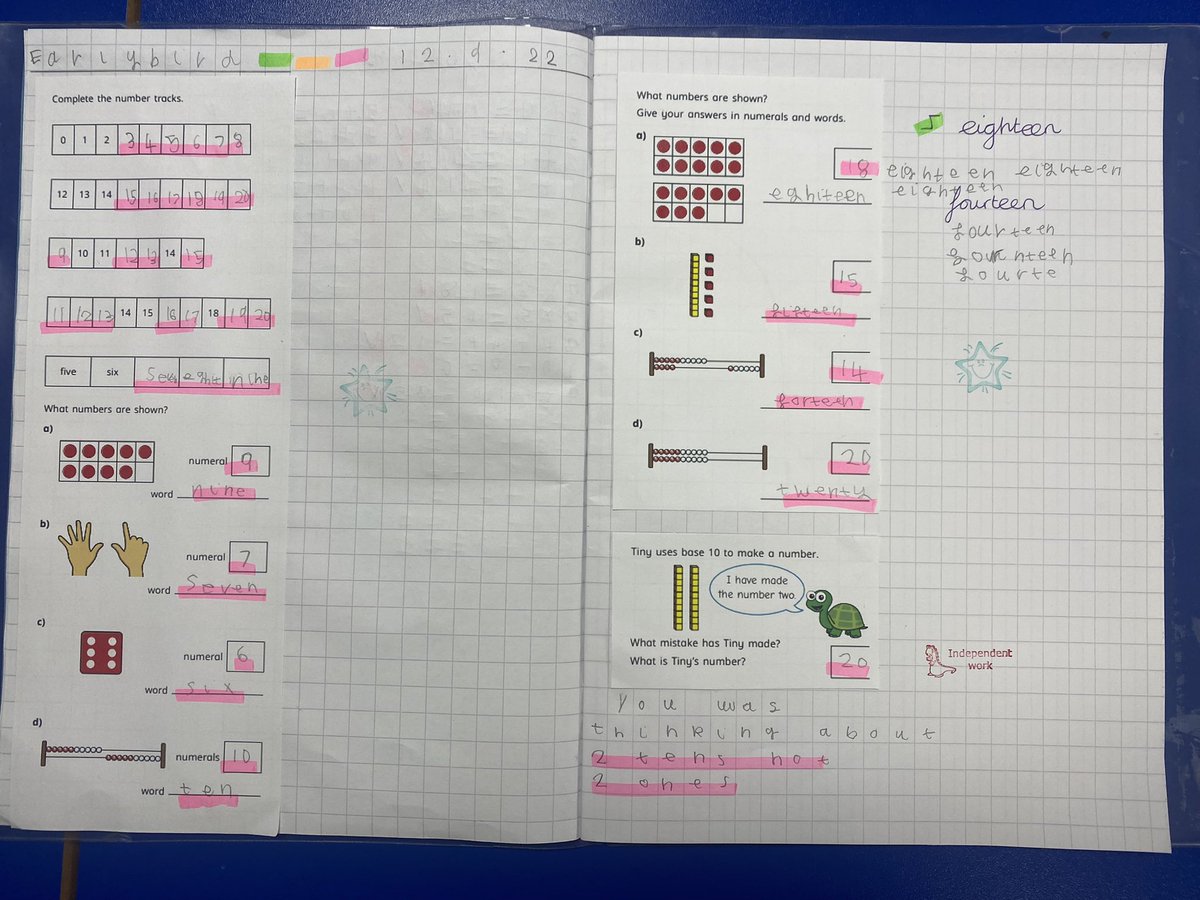 Earlybird 12.9.22
Complete the number tracks.
0 1 2 3 4 5 6 7 8
12 13 14 15 16 17 18 19 20
9 10 11 12 13 14 15
11 12 13 14 15 16 17 18 19 20
five six seven eght nine
What numbers are shown?
a)
numeral 9
word nine
b)
numeral 7
word seven
c)
numeral 6
word six
d)
numerals 10
word ten
What numbers are shown?
Give your answers in numerals and words.
a)
18
eghiteen
b)
15
fifteen
c)
14
forteen
d)
20
twenty
Tiny uses base 10 to make a number.
I have made
the number two.
What mistake has Tiny made?
What is Tiny's number?
20
you was
thinking about
2 tens not
2 ones
eighteen
eighteen eighteen
eighteen
fourteen
fourteen
fourte
Independent
work